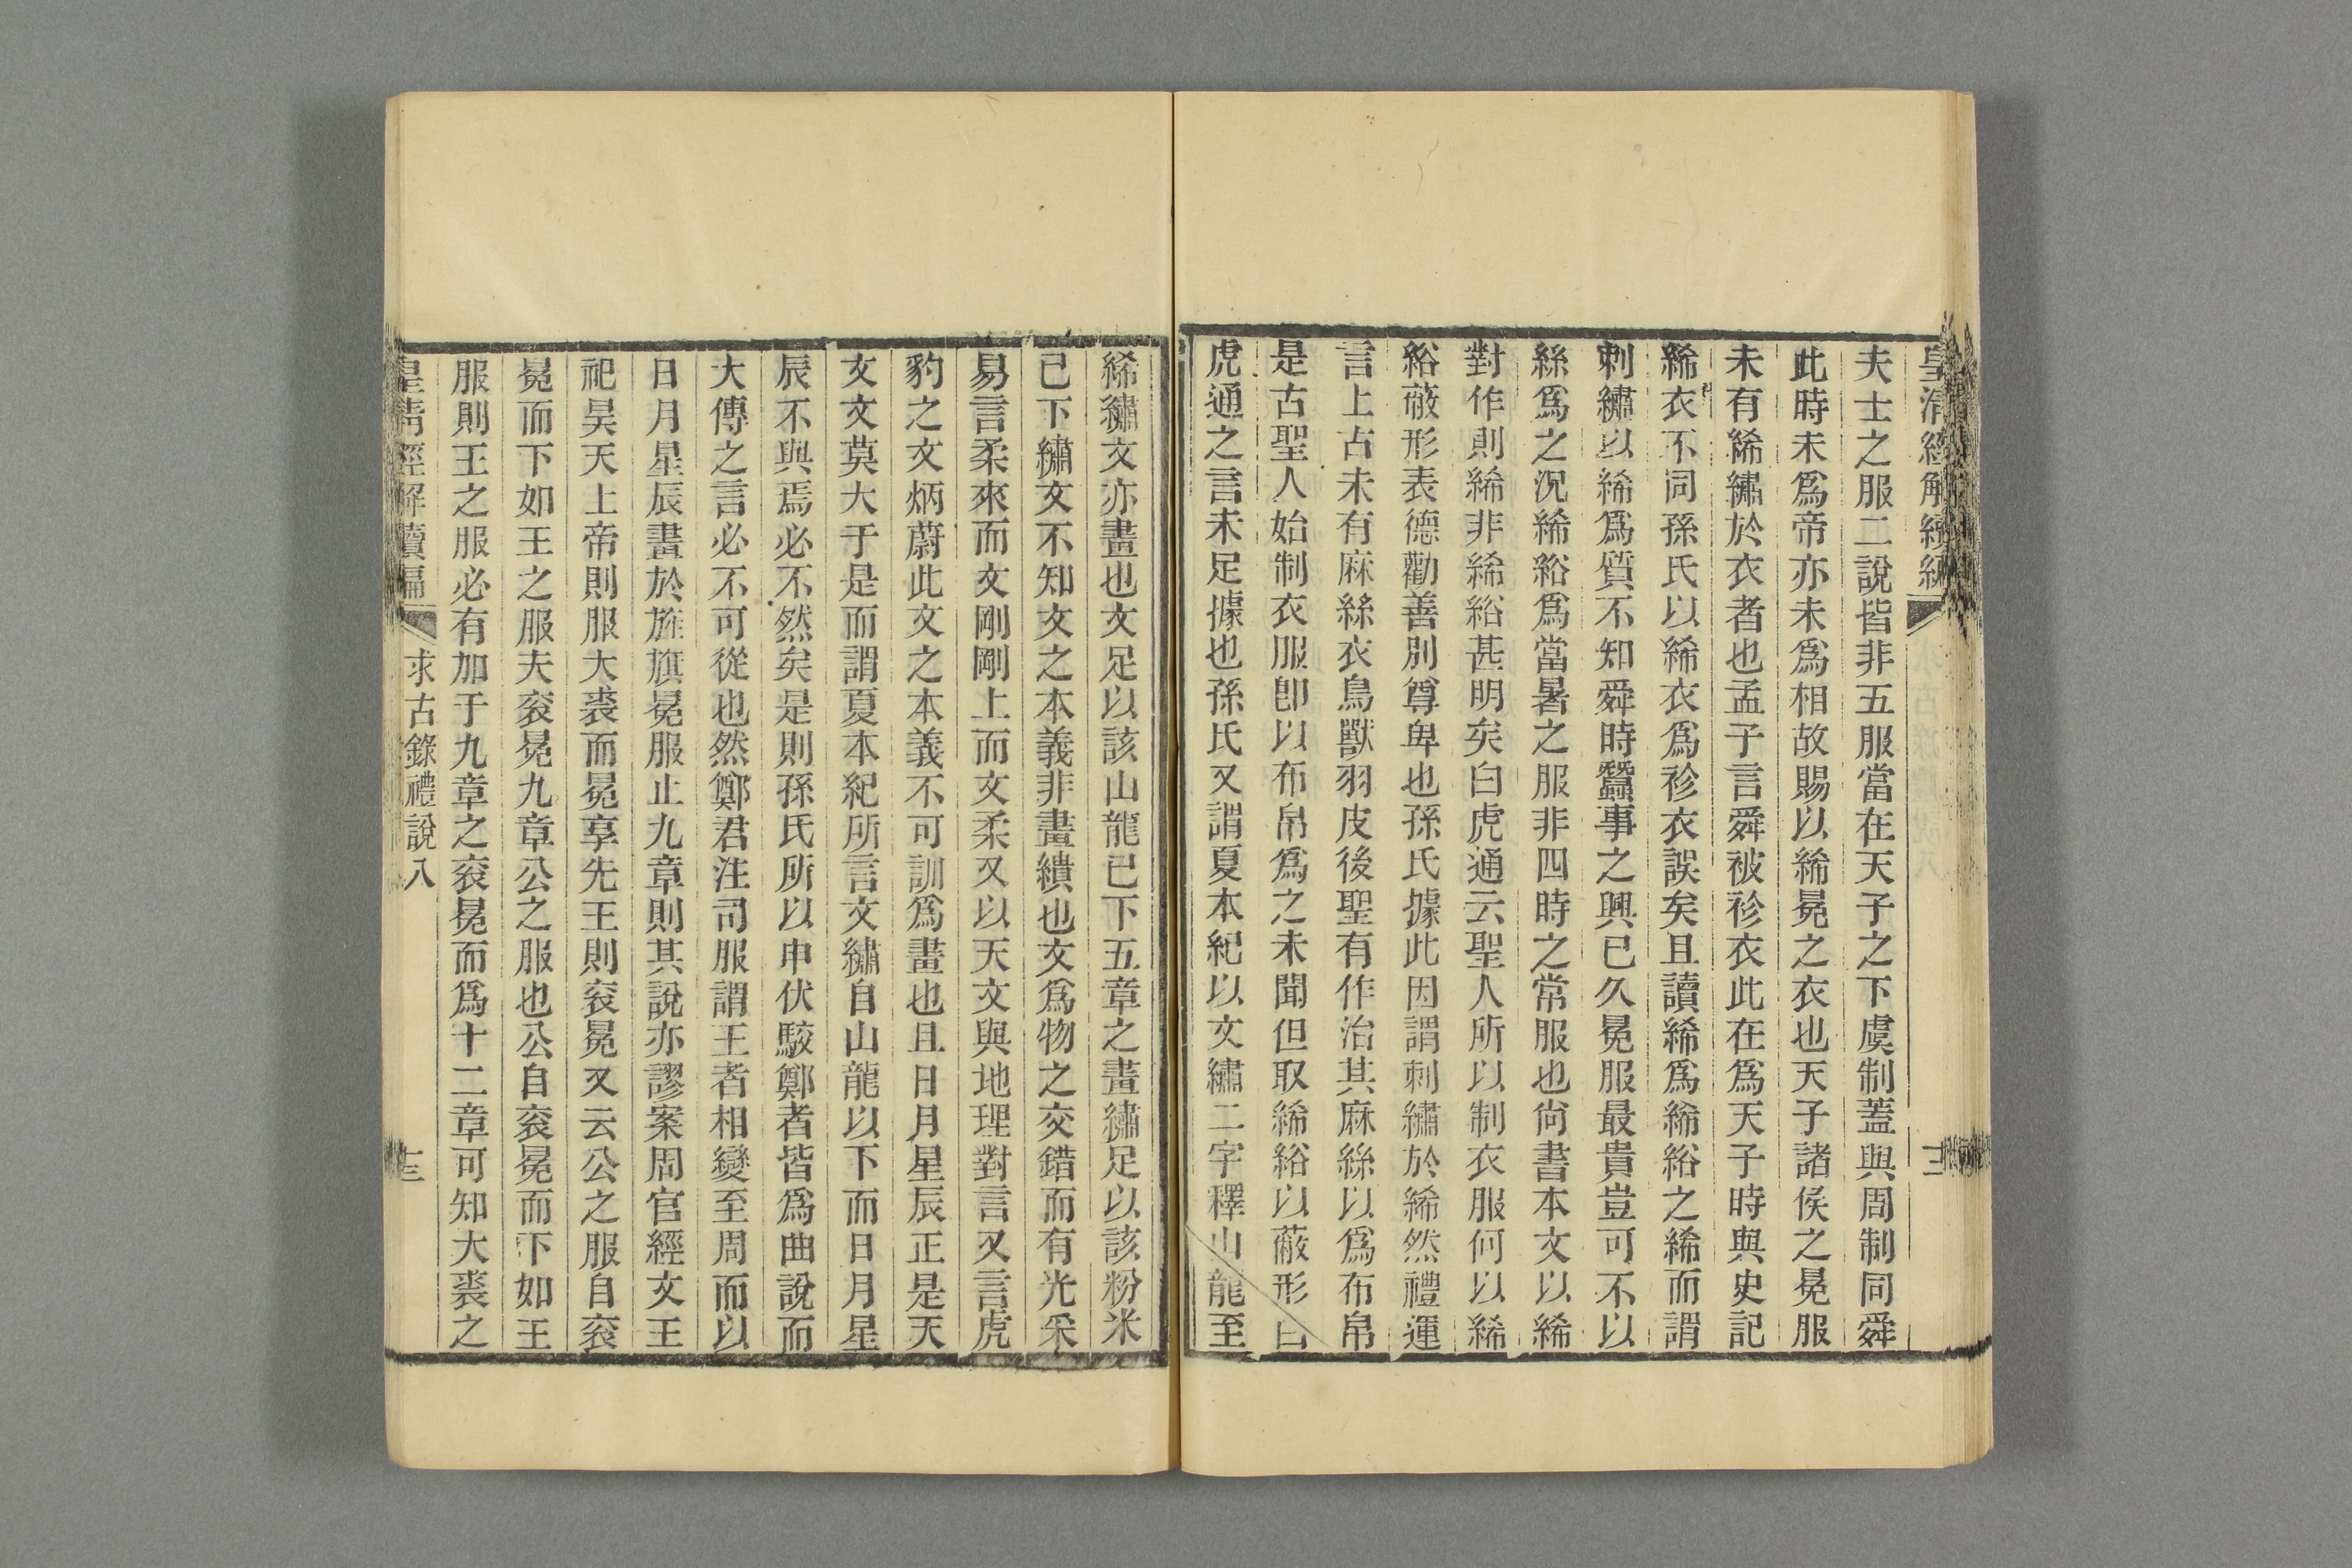 皇清經解續編
十二
夫士之服二說皆非五服當在天子之下虞制蓋與周制同舜
此時未爲帝亦未爲相故賜以絺冕之衣也天子諸侯之冕服
未有絺繡於衣者也孟子言舜被袗衣此在爲天子時與史記
絺衣不同孫氏以絺衣爲袗衣誤矣且讀絺爲絺綌之絺而謂
刺繡以絺爲質不知舜時蠶事之興已久冕服最貴豈可不以
絲爲之況絺綌爲當暑之服非四時之常服也尙書本文以絺
對作則絺非絺綌甚明矣白虎通云聖人所以制衣服何以絺
綌蔽形表德勸善別尊卑也孫氏據此因謂刺繡於絺然禮運
言上古未有麻絲衣鳥獸羽皮後聖有作治其麻絲以爲布帛
是古聖人始制衣服卽以布帛爲之未聞但取絺綌以蔽形白
虎通之言未足據也孫氏又謂夏本紀以文繡二字釋山龍至
絺繡文亦畫也文足以該山龍已下五章之畫繡足以該粉米
已下繡文不知文之本義非畫繢也文爲物之交錯而有光采
易言柔來而文剛剛上而文柔又以天文與地理對言又言虎
豹之文炳蔚此文之本義不可訓爲畫也且日月星辰正是天
文文莫大于是而謂夏本紀所言文繡自山龍以下而日月星
辰不與焉必不然矣是則孫氏所以申伏駮鄭者皆爲曲說而
大傳之言必不可從也然鄭君注司服謂王者相變至周而以
日月星辰畫於旌旗冕服止九章則其說亦謬案周官經文王
祀昊天上帝則服大裘而冕享先王則袞冕又云公之服自袞
冕而下如王之服夫袞冕九章公之服也公自袞冕而下如王
服則王之服必有加于九章之袞冕而爲十二章可知大裘之
皇淸經解續編
求古錄禮說八
十三